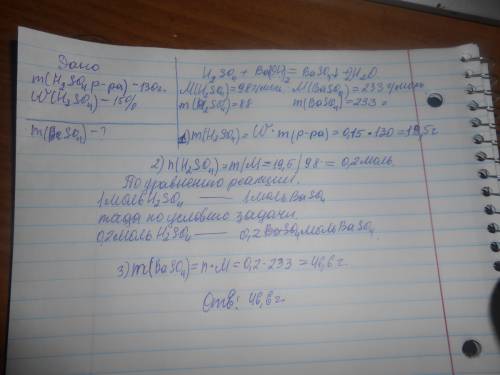 Дано
m(H₂SO₄ р-ра) - 130г.
W(H₂SO₄) - 15%
m(BaSO₄) - ?
H₂SO₄ + Ba(OH)₂ = BaSO₄↓ + 2H₂O
M(H₂SO₄) = 98г/моль M(BaSO₄) = 233 г/моль
m(H₂SO₄) = 98 m(BaSO₄) = 233 г
1) m(H₂SO₄) = W · m(р-ра) = 0,15 · 130 = 19,5г
2) n(H₂SO₄) = m/M = 19,5/98 = 0,2моль.
По уравнению реакции.
1 моль H₂SO₄ — 1 моль BaSO₄
тогда по условию задачи.
0,2моль H₂SO₄ — 0,2 моль BaSO₄
3) m(BaSO₄) = n · M = 0,2 · 233 = 46,6г.
Отв: 46,6г.